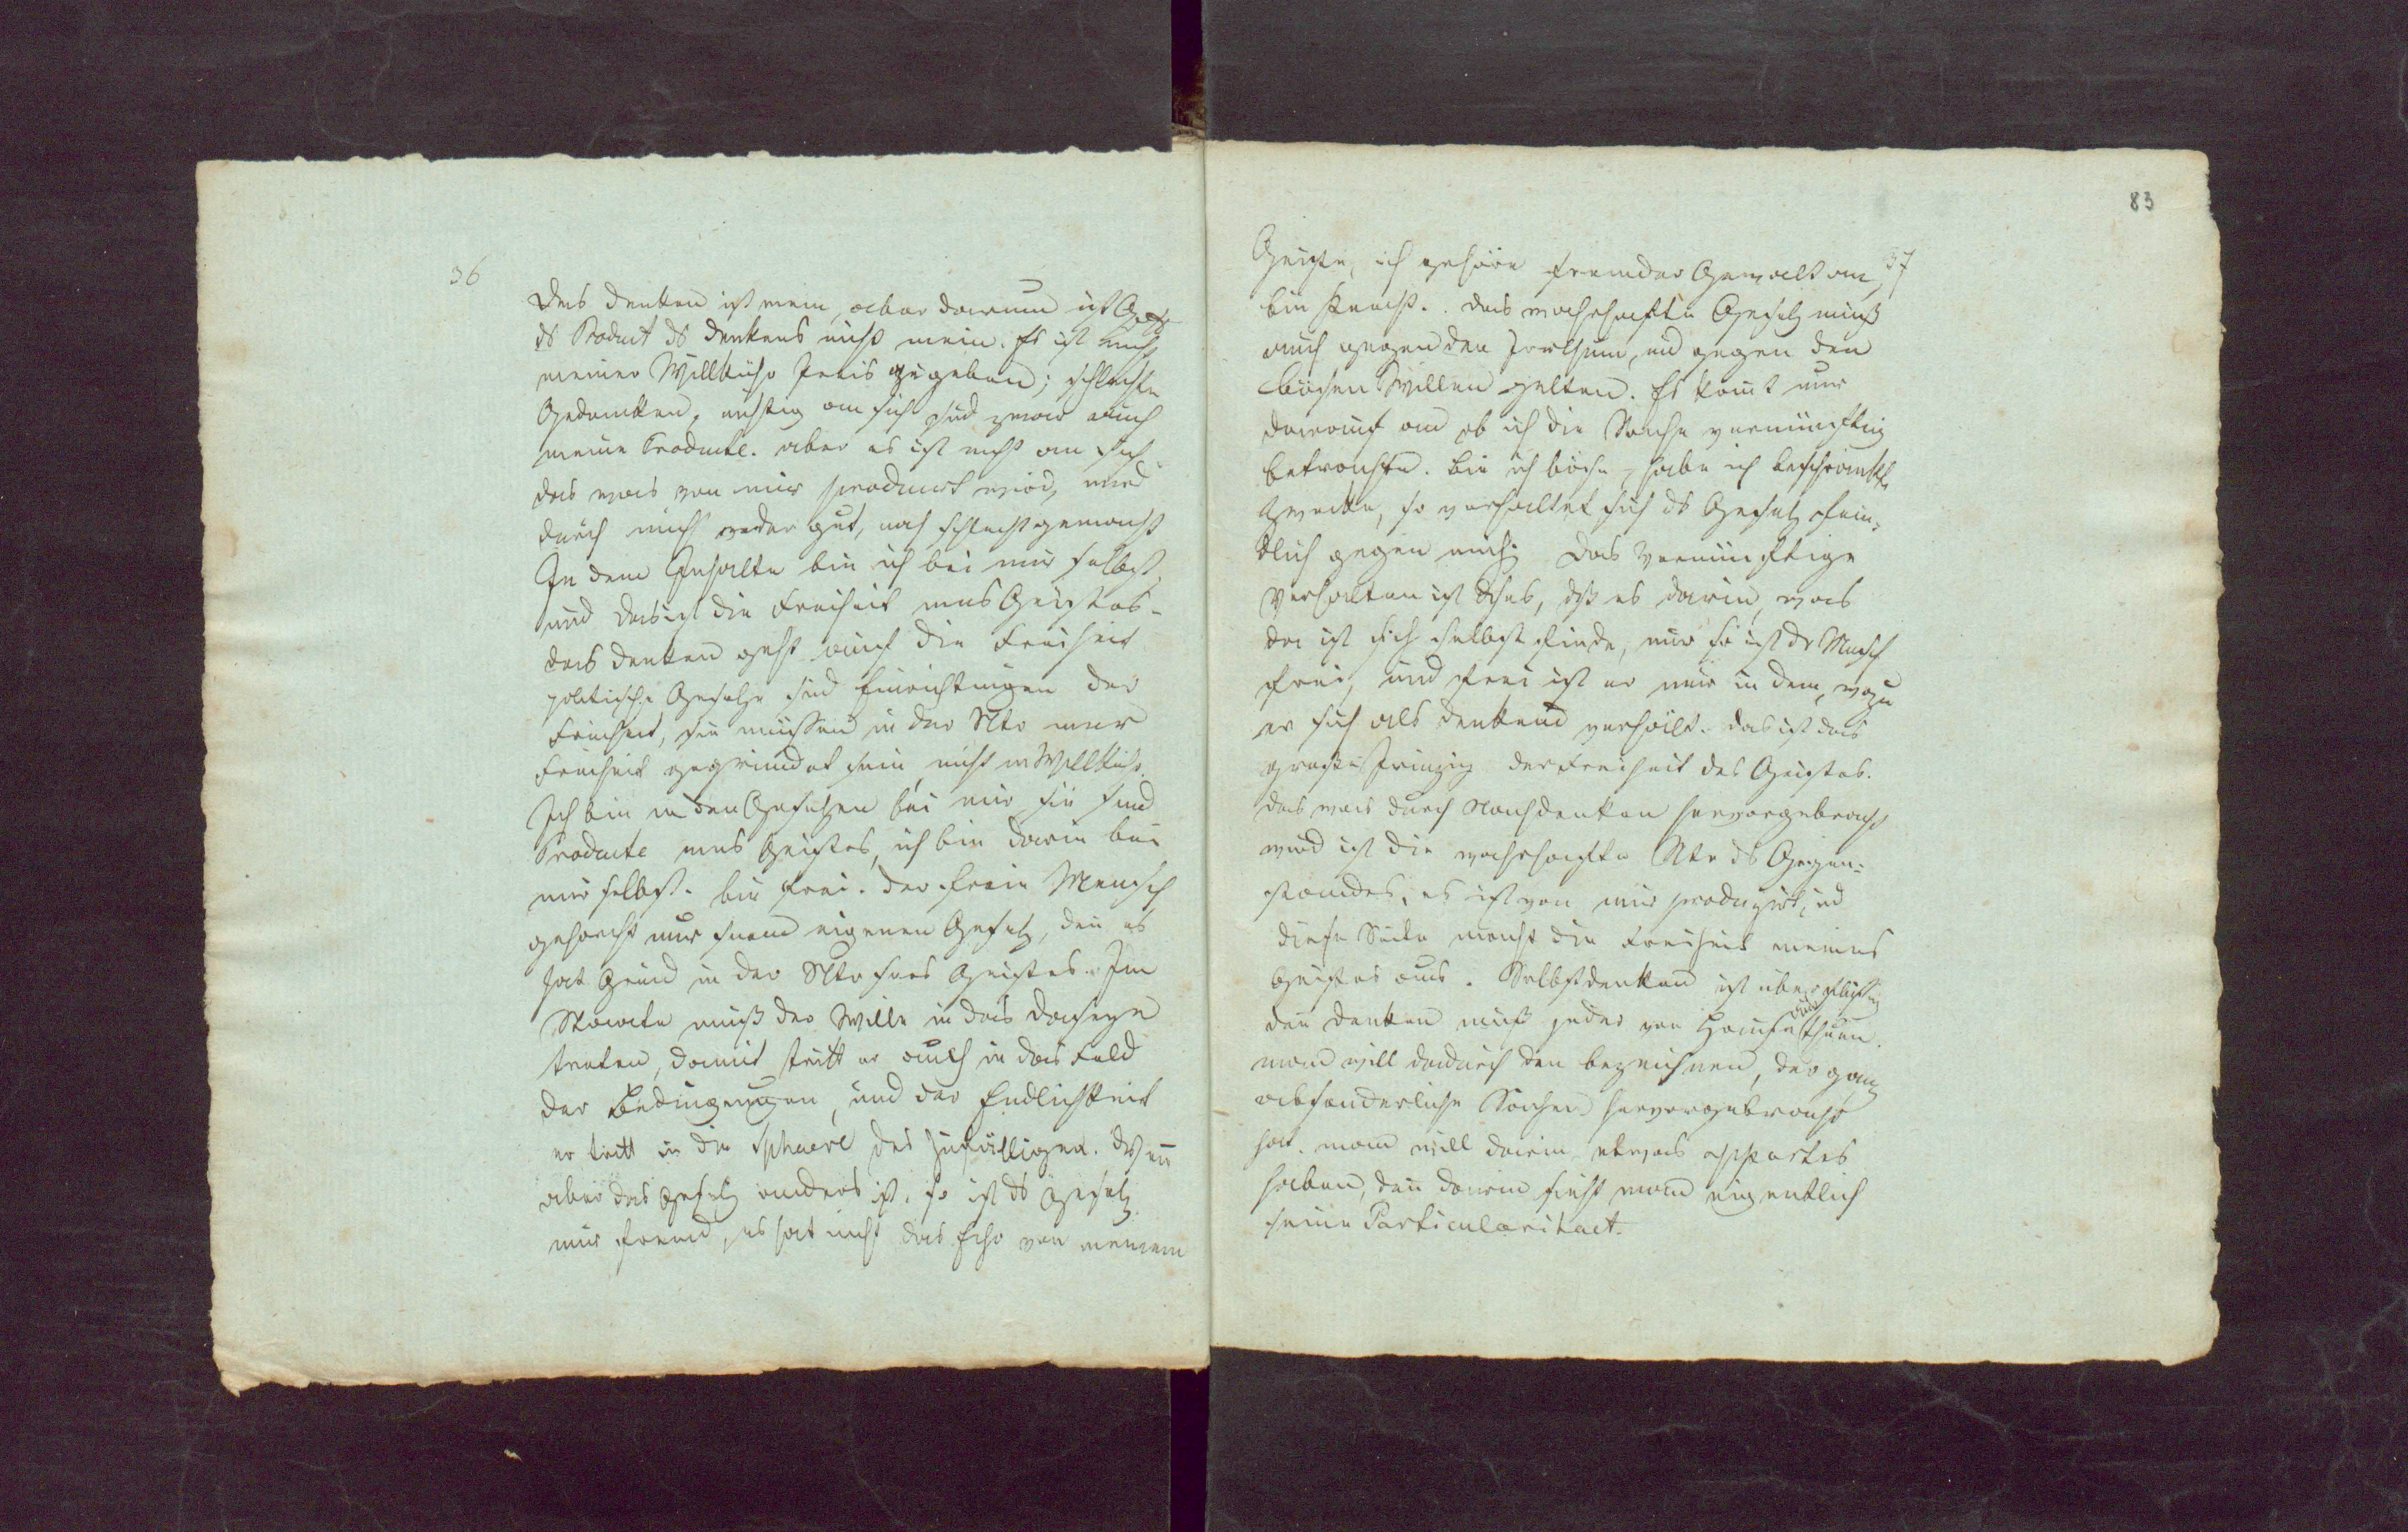 36
Das Denken ist mein, aber darum ist
ds Product ds Denkens nicht mein. Es ist nicht
meiner Willkühr Preis gegeben; schlechte
Gedanken, nichtig an sich sind zwar auch
meine Producte. aber es ist nicht an sich
das was von mir producirt wird, wird
durch mich weder gut, noch schlecht gemacht
In dem Inhalte bin ich bei mir selbst,
und das ist die Freiheit mns Geistes.
das Denken geht auf die Freiheit
politische Gesetze sind Einrichtungen der
Freiheit, sie müssen in der Ntr mnr
Freiheit gegründet sein, nicht in Willkühr.
Ich bin in den Gesetzen bei mir, sie sind
Producte mns Geistes, ich bin darin bei
mir selbst. bin frei. der freie Mensch
gehorcht nur seinem eigenen Gesetz, den es
hat Grund in der Ntr sns Geistes. Im
Staate muß der Wille in das Daseyn
treten, damit tritt er auch in das Feld
der Bedingungen, und der Endlichkeit
er tritt in die Sphaere des Zufälligen. Wen
aber das Gesetz anders ist, so ist ds Gesetz
mir fremd, es hat nicht das Echo von meinem
83
37
Geiste, ich gehöre fremder Gewalt an,
bin Knecht. Das wahrhafte Gesetz muß
auch gegen den Irrthum, und gegen den
bösen Willen gelten. Es komt nur
darauf an ob ich die Sache vernünftig
betrachte. bin ich böse, habe ich beschränkte
Zwecke, so verhaltet sich ds Gesetz fein-
dlich gegen mich; das Vernünftige
Verhalten ist dises, dß es darin, was
da ist sich selbst finde, nur so ist dr Mensch
frei, und frei ist er nur in dem, wozu
er sich als denkend verhält. das ist das
große Prinzip der Freiheit des Geistes.
das was durch Nachdenken hervorgebracht
wird ist die wahrhafte Ntr ds Gegen-
standes, es ist von mir produzirt, ud
diese Seite macht die Freiheit meines
Geistes aus. Selbstdenken ist überflüssig
den denken muß jeder von Hause aus thuen.
man will dadurch den bezeichnen, der ganz
absonderliche Sachen hervorgebracht
hat. man will darin etwas appartes
haben, den darin sieht man eigentlich
seine Particularitaet.